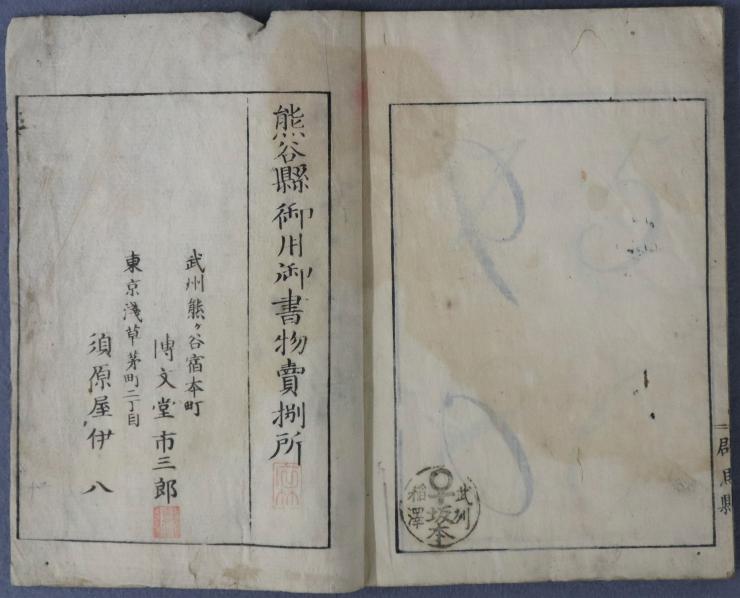 熊谷縣御用御書物賣捌所
武州熊ヶ谷宿本町
博文堂市三郎
東京淺草茅町二丁目
須原屋伊八
武州
坂本
稲澤